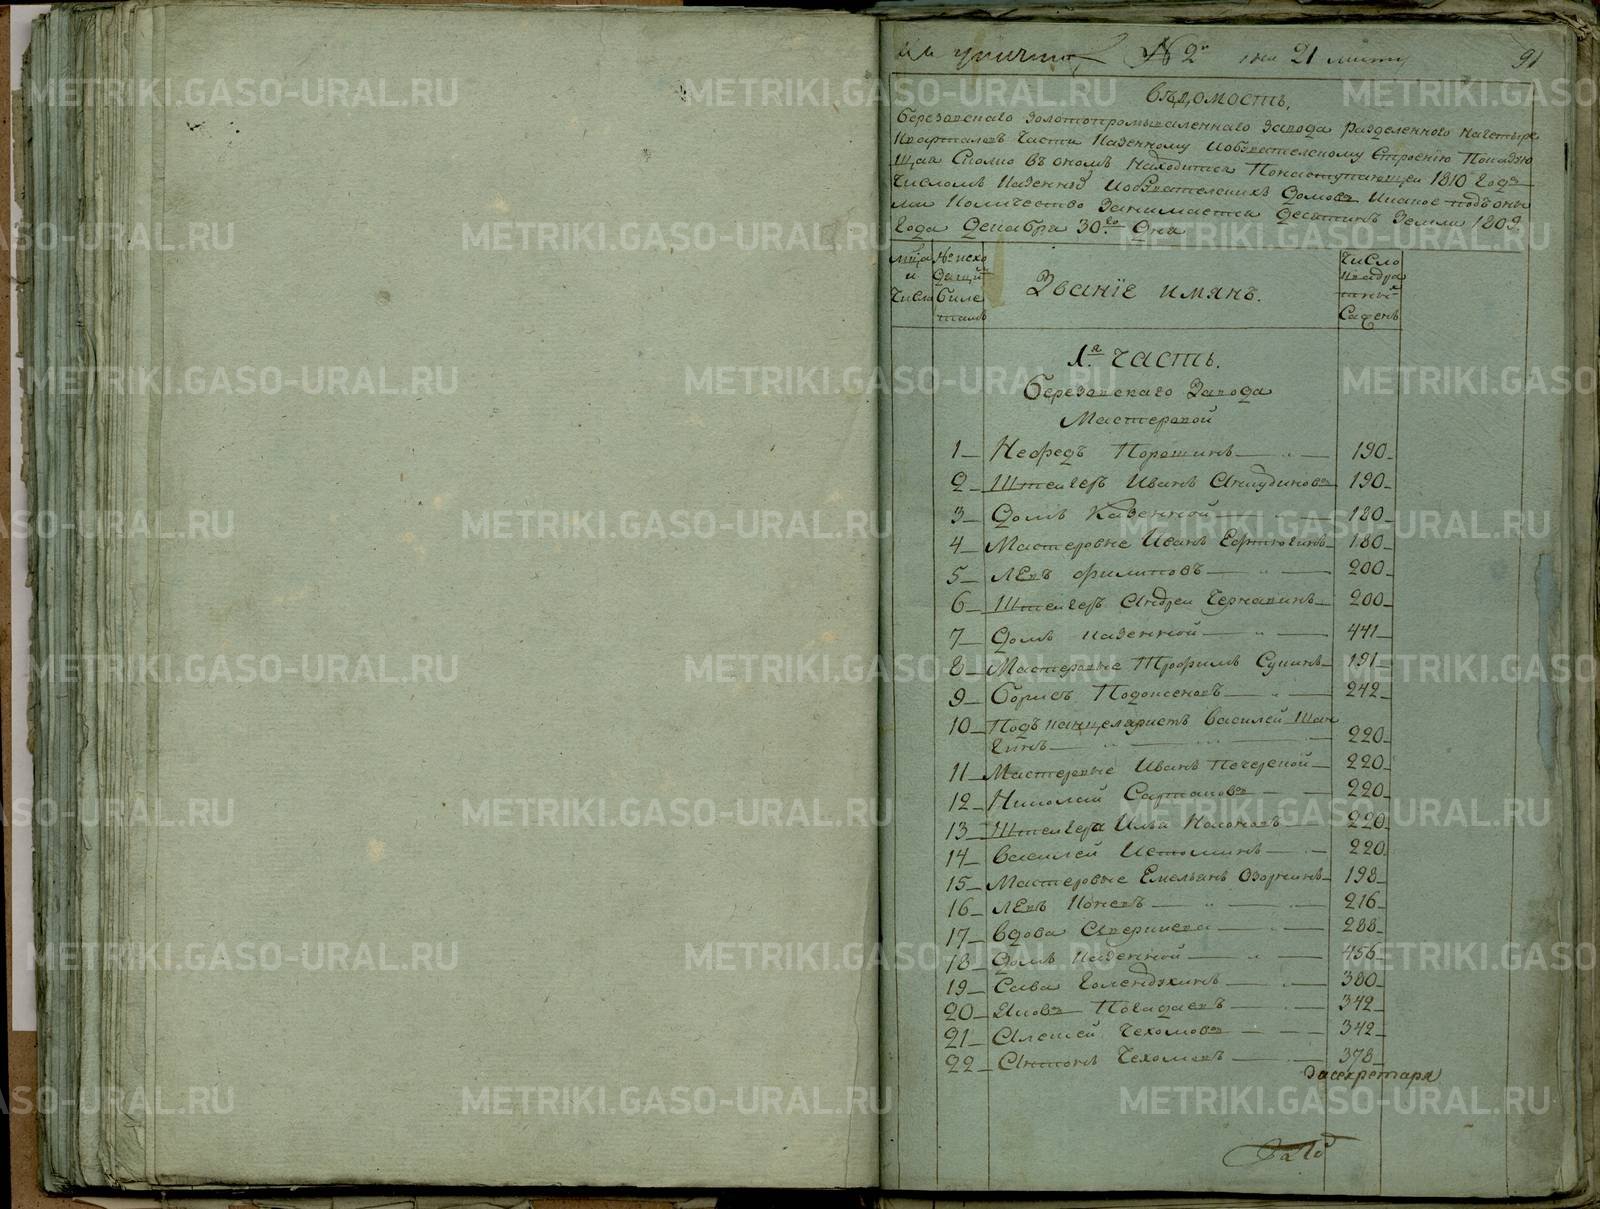 № 2й 21 91
Вѣдомость,
Березовскаго Золотопромываленнаго Завода разделенного начетыре
Кварталовъ Части Казенному Иобывателскому Строению
Сколко въ ономъ Находится Понаступающеи 1810 Годъ
Числомъ Казенныхъ Иобывателскихъ Домовъ Икакое подъоны
ми Количество Занимаетъ Десятинъ Земли 1809
Года Декабря 30го Дня
Мца и Числа
№ исходящий Билетамъ
Званіе имянъ.
Число Квадратныхъ Саженъ
1я. Часть.
Березовскаго Завода
Мастеровой
1 Нефедъ Порошинъ 190
2 Штейгеръ Иванъ Анкудиновъ 190
3 Домъ Казенной 180
4 Мастеровые Иванъ Ефтюгинъ 180
5 Левъ Филиповъ 200
6 Штейгеръ Андреи Чернавинъ 200
7 Домъ казенной 441
8 Мастеровые Трофимъ Сукинъ 191
9 Борисъ Подоксеновъ 242
10 Подъканцеляристъ Василей Шан
гинъ 220
11 Мастеровые Иванъ Печерской 220
12 Николай Сартаковъ 220
13 Штейгера Илья Кокотѣевъ 220
14 Василей Истоминъ 220
15 Мастеровые Емельянъ Озорнинъ 198
16 Левъ Коневъ 216
17 Вдова Аверкиева 288
18 Домъ Казенной 456
19 Сава Голендухинъ 380
20 Яковъ Погадаевъ 342
21 Алексей Чехомовъ 342
22 Антонъ Чехомовъ 378
Засекретаря
METRIKI.GASO-URAL.RU